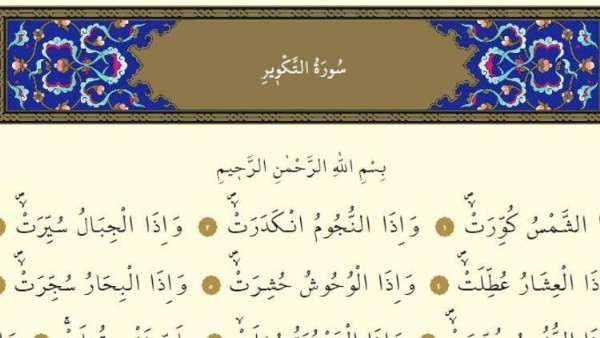 سُورَةُ التَّكْوٖيرِ
بِسْمِ اللهِ الرَّحْمٰنِ الرَّحٖيمِ
الشَّمْسُ كُوِّرَتْۙ ١ وَاِذَا النُّجُومُ انْكَدَرَتْۙ ٢ وَاِذَا الْجِبَالُ سُيِّرَتْۙ
الْعِشَارُ عُطِّلَتْۙ ٤ وَاِذَا الْوُحُوشُ حُشِرَتْۙ ٥ وَاِذَا الْبِحَارُ سُجِّرَتْۙ